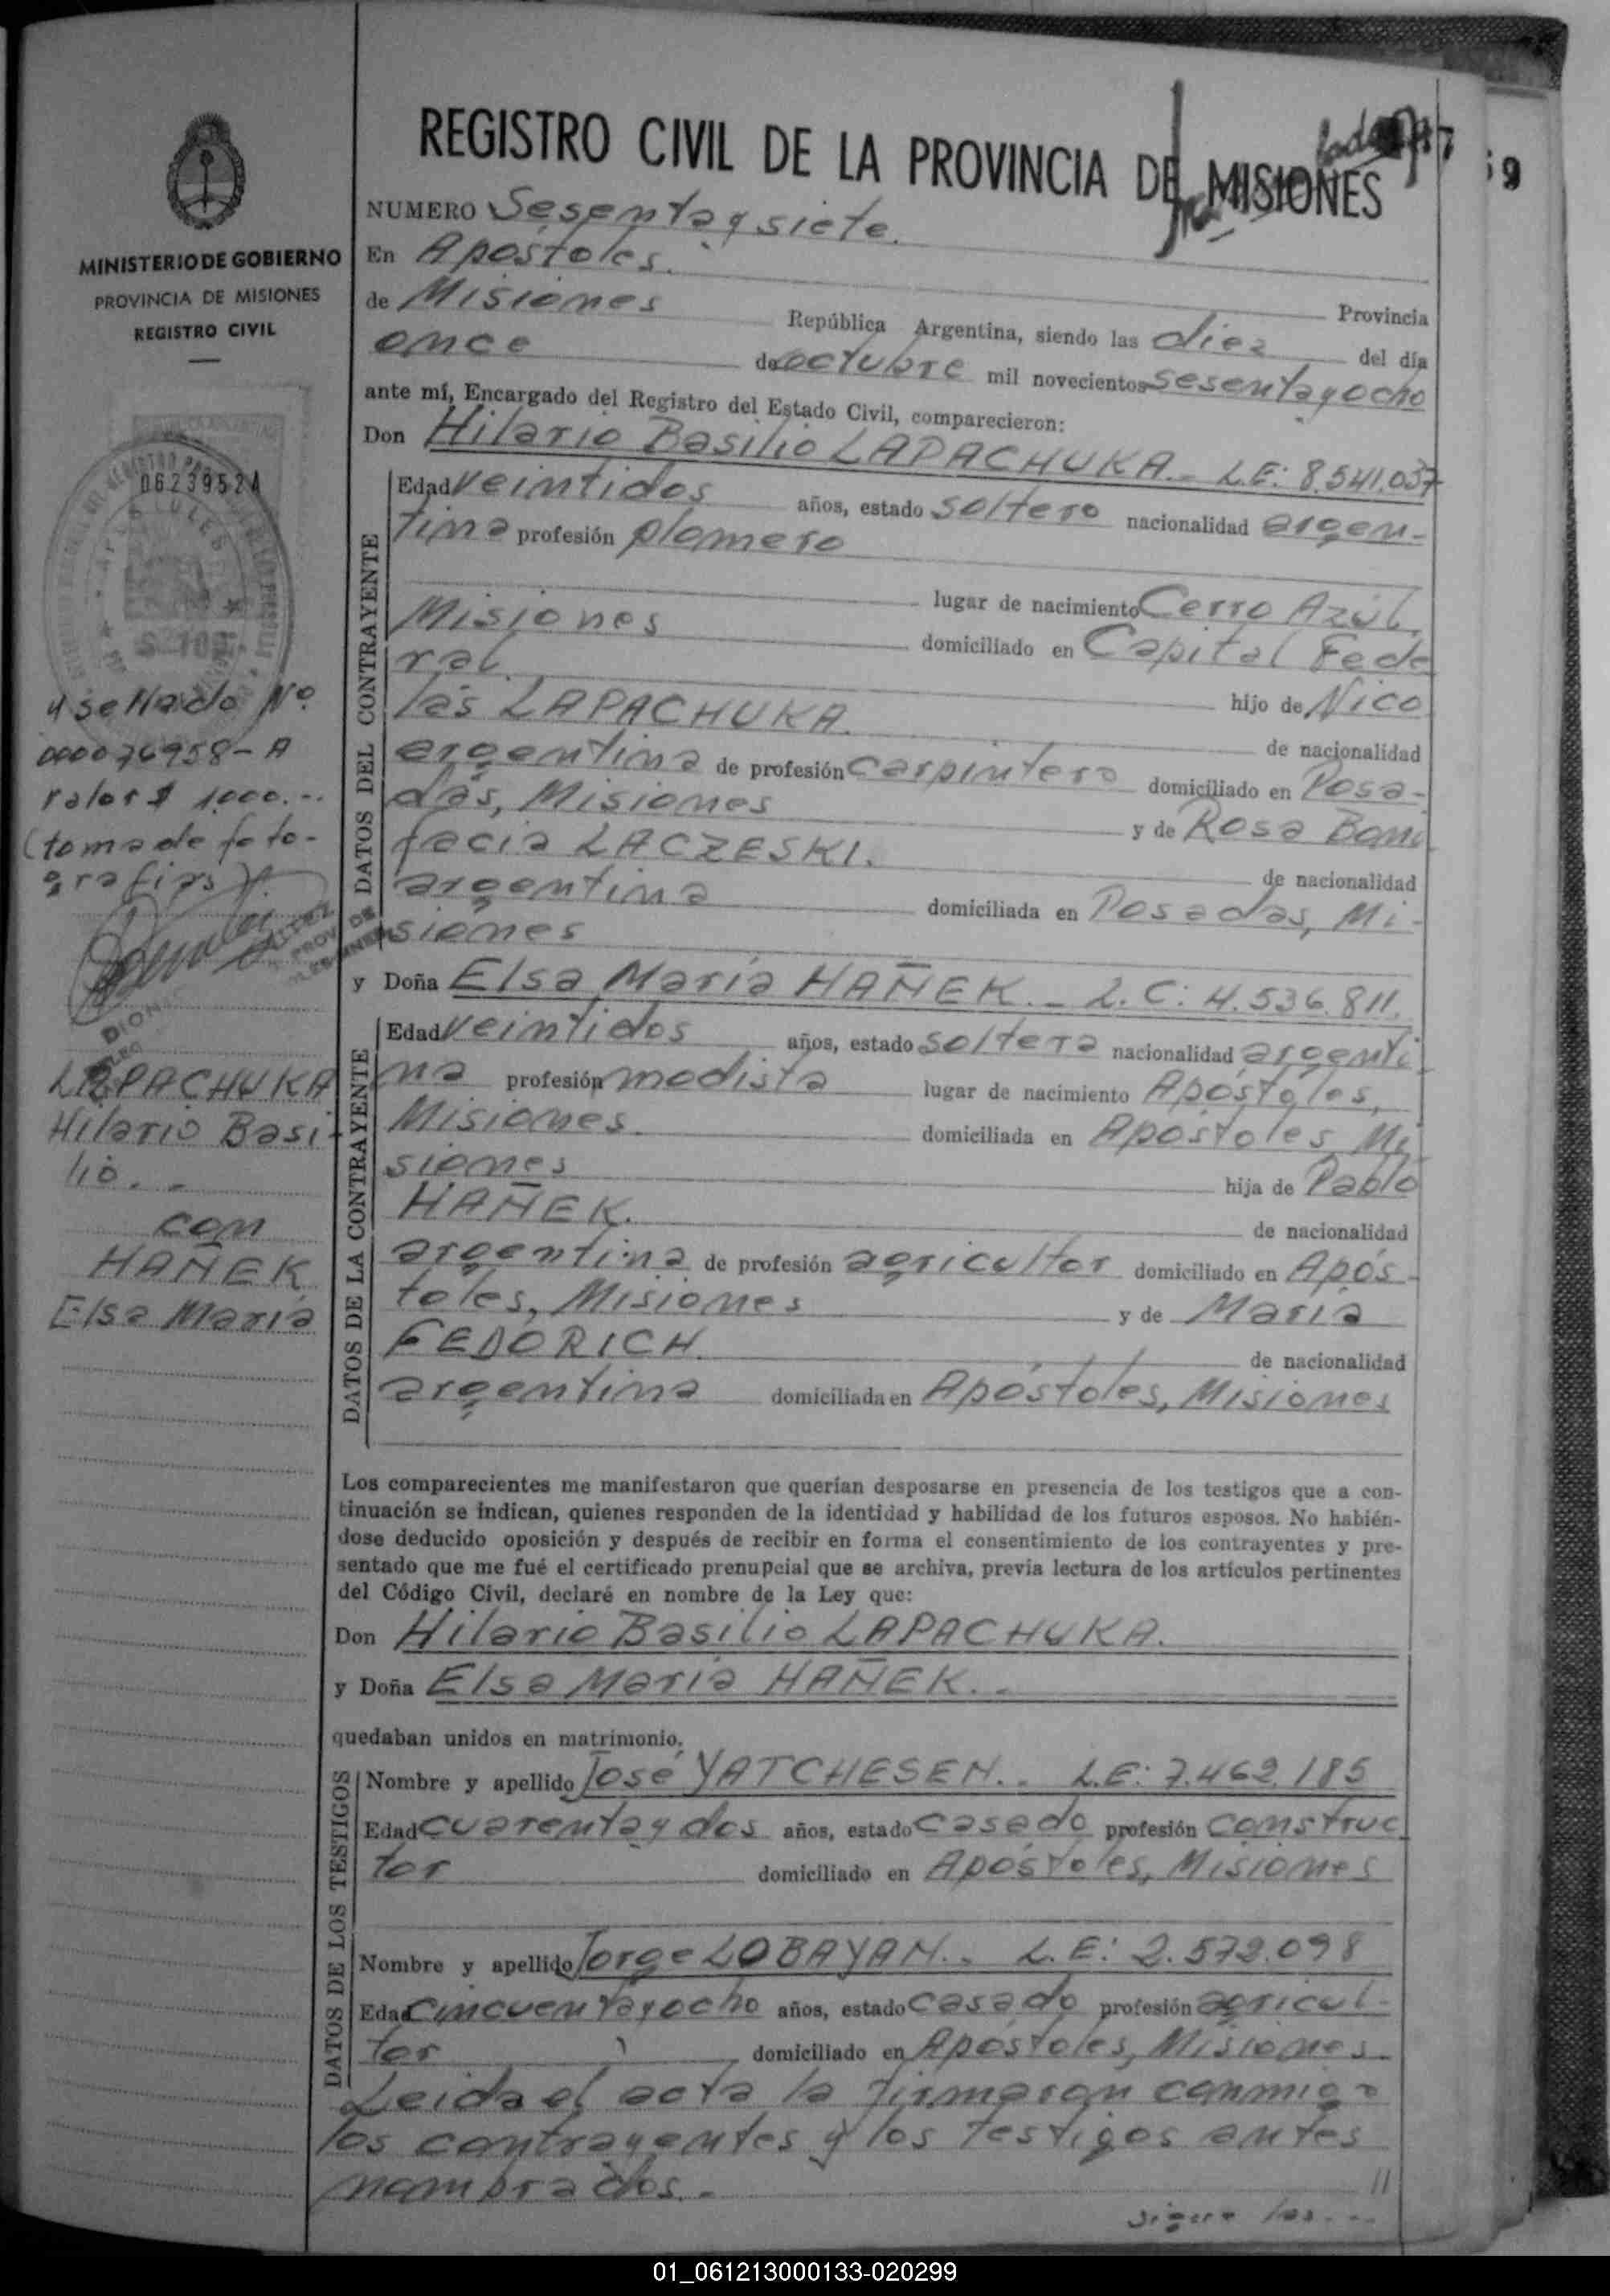 REGISTRO CIVIL DE LA PROVINCIA DE MISIONES
69
MINISTERIO DE GOBIERNO
PROVINCIA DE MISIONES
REGISTRO CIVIL
NUMERO Sesenta y siete.
En Apóstoles. Provincia
de Misiones República Argentina, siendo las diez del día
once de octubre mil novecientos sesenta y ocho
ante mí, Encargado del Registro del Estado Civil, comparecieron:
Don Hilario Basilio LAPACHUKA.- L.E: 8.541.037
DATOS DEL CONTRAYENTE
Edad veintidos años, estado soltero nacionalidad argen-
tina profesión plomero
lugar de nacimiento Cerro Azúl,
Misiones domiciliado en Capital Fede
ral. hijo de Nico
lás LAPACHUKA. de nacionalidad
argentina de profesión carpintero domiciliado en Posa-
das, Misiones y de Rosa Boni
facia LACZESKI. de nacionalidad
argentina domiciliada en Posadas, Mi-
siones
y Doña Elsa María HAÑEK.- L.C: 4.536.811.
DATOS DE LA CONTRAYENTE
Edad veintidos años, estado soltera nacionalidad argenti
na profesión modista lugar de nacimiento Apóstoles,
Misiones. domiciliada en Apóstoles Mi
siones hija de Pablo
HAÑEK. de nacionalidad
argentina de profesión agricultor domiciliado en Após-
toles, Misiones y de María
FEDORICH. de nacionalidad
argentina domiciliada en Apóstoles, Misiones
Los comparecientes me manifestaron que querían desposarse en presencia de los testigos que a con-
tinuación se indican, quienes responden de la identidad y habilidad de los futuros esposos. No habién-
dose deducido oposición y después de recibir en forma el consentimiento de los contrayentes y pre-
sentado que me fué el certificado prenupcial que se archiva, previa lectura de los artículos pertinentes
del Código Civil, declaré en nombre de la Ley que:
Don Hilario Basilio LAPACHUKA.
y Doña Elsa María HAÑEK..
quedaban unidos en matrimonio.
DATOS DE LOS TESTIGOS
Nombre y apellido José YATCHESEN.. L.E: 7.462.185
Edad cuarenta y dos años, estado casado profesión construc
tor domiciliado en Apóstoles, Misiones
Nombre y apellido Jorge LOBAYAN.. L.E: 2.572.098
Edad cincuenta y ocho años, estado casado profesión agricul-
tor domiciliado en Apóstoles, Misiones
Leida el acta la firmaron conmigo
los contrayentes y los testigos antes
nombrados.-
//
sigue las...
0623952A
y sellado Nº
000076958-A
valor $ 1000.--
(toma de foto-
grafías)
LAPACHUKA
Hilario Basi-
lio.-
con
HAÑEK
Elsa María
01_061213000133-020299